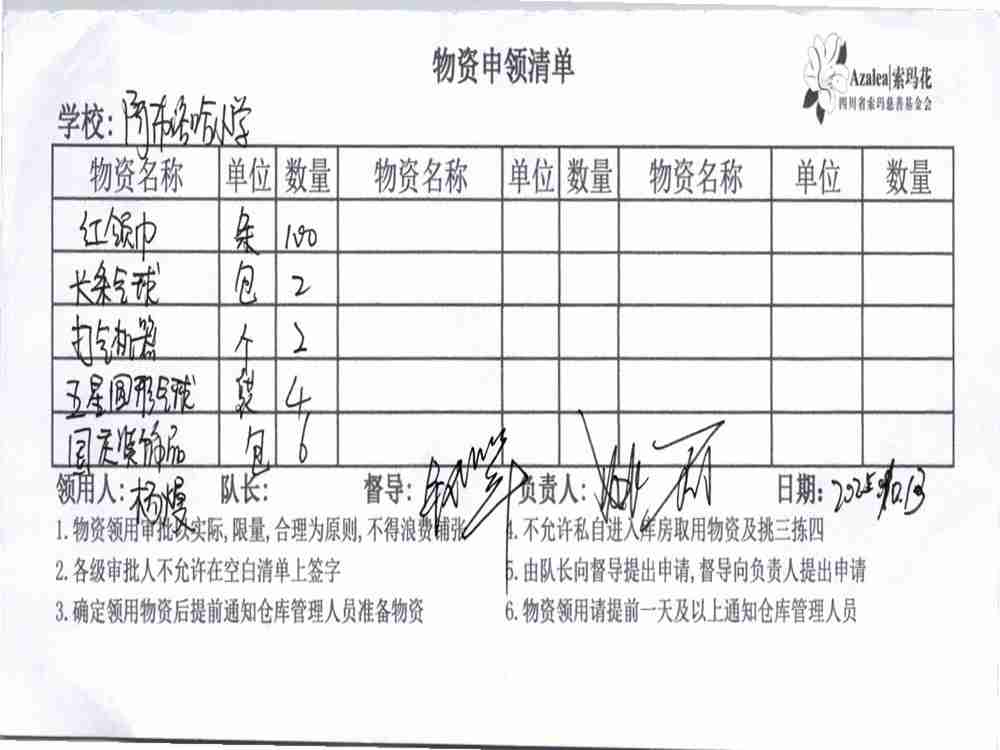 物资申领清单
Azalea|索玛花
四川省索玛慈善基金会
学校: 洛哈小学
物资名称 单位 数量 物资名称 单位 数量 物资名称 单位 数量
红领巾 条 100
长条气球 包 2
打气机器 个 2
五星圆形气球 袋 4
国庆装饰品 包 6
领用人: 杨 队长: 督导: 负责人: 日期: 2025
1.物资领用审批以实际,限量,合理为原则,不得浪费铺张 4.不允许私自进入库房取用物资及挑三拣四
2.各级审批人不允许在空白清单上签字 5.由队长向督导提出申请,督导向负责人提出申请
3.确定领用物资后提前通知仓库管理人员准备物资 6.物资领用请提前一天及以上通知仓库管理人员